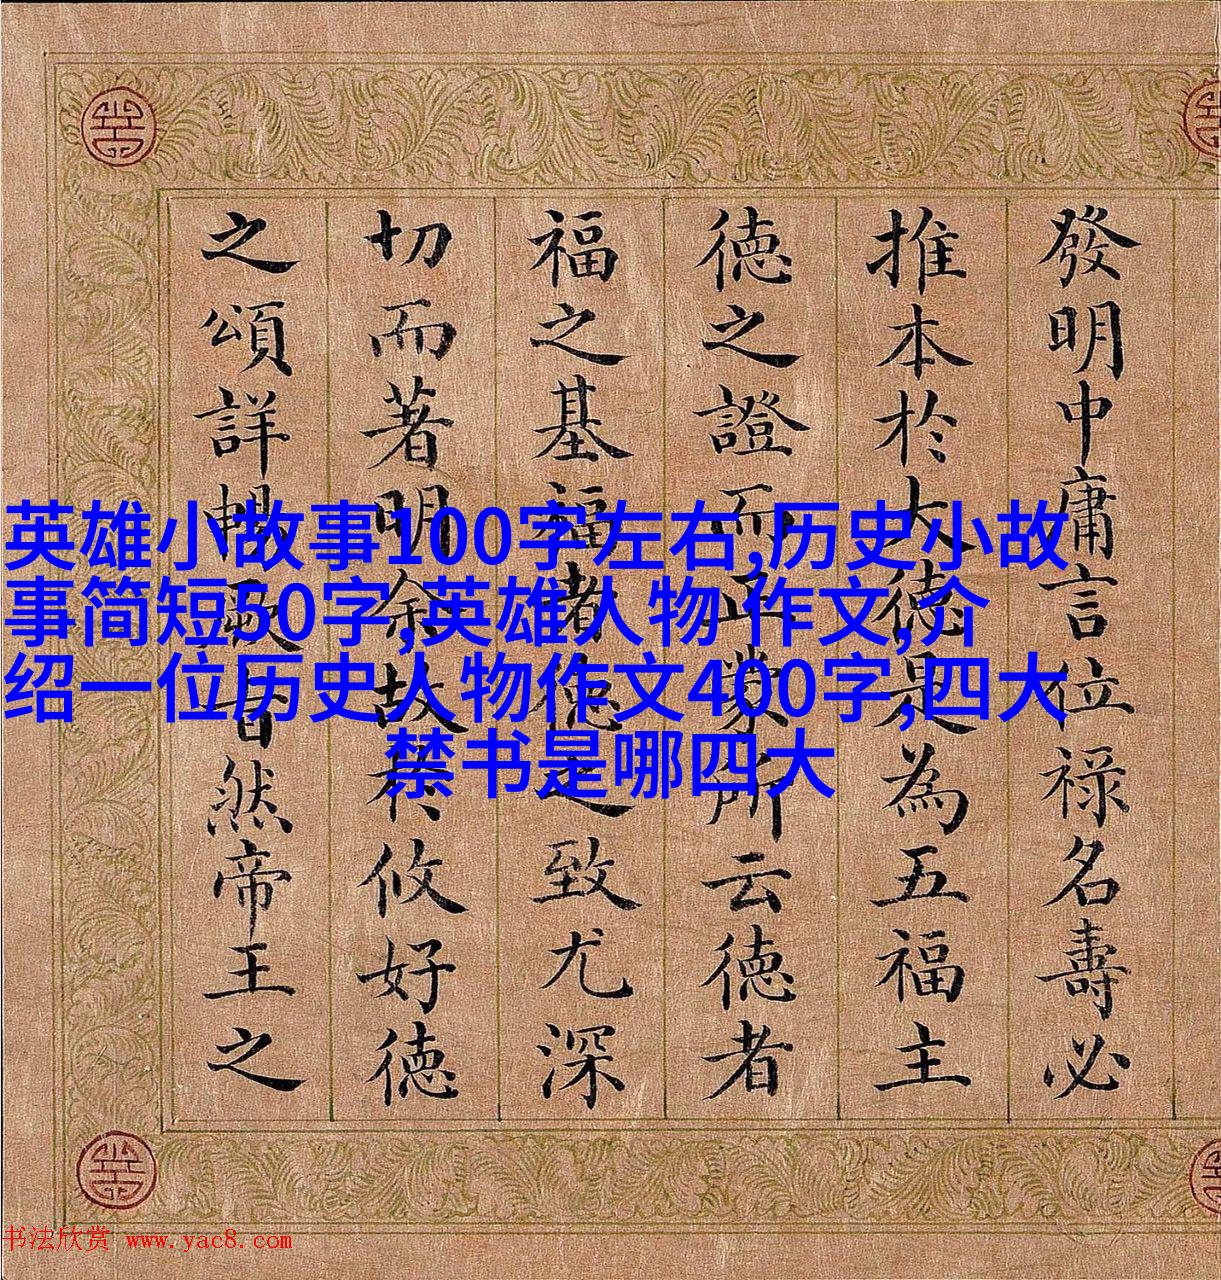 發明中庸言位祿名壽必
推本於大德是為五福主
德之證而正蒙所云德者
福之基福者德之致尤深
切而著明余故於攸好德
之頌詳暢厥旨然帝王之
英雄小故事100字左右,历史小故
事简短50字,英雄人物 作文,介
绍一位历史人物作文400字,四大
禁书是哪四大
书法欣赏 www.yac8.com